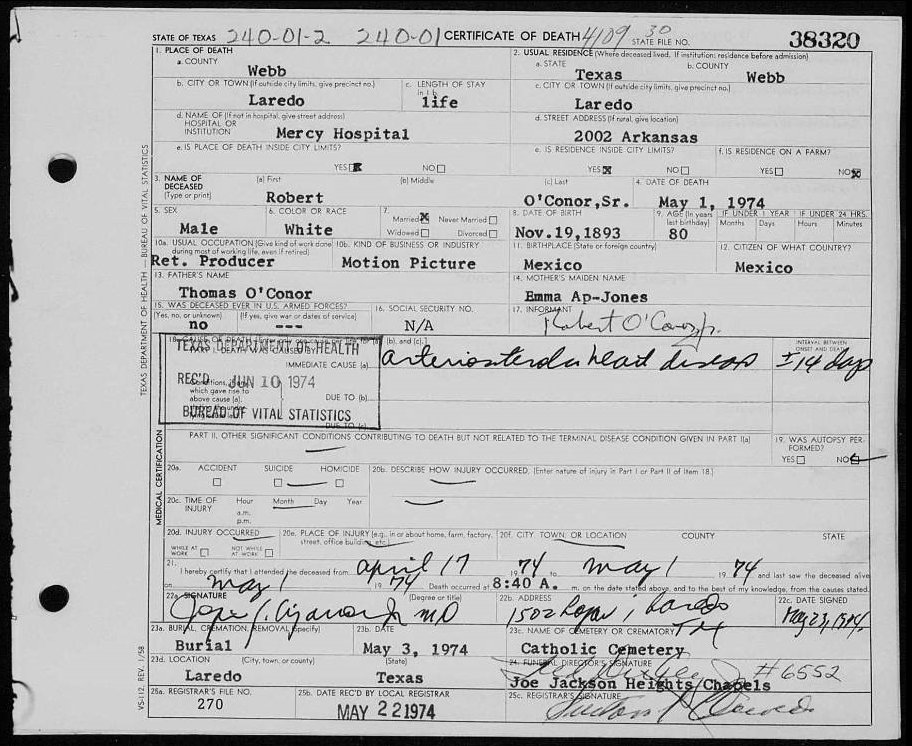 STATE OF TEXAS 240-01-2 240-01 CERTIFICATE OF DEATH 4109 30 STATE FILE NO. 38320
1. PLACE OF DEATH
a. COUNTY
Webb
2. USUAL RESIDENCE (Where deceased lived. If institution: residence before admission)
a. STATE b. COUNTY
Texas Webb
b. CITY OR TOWN (If outside city limits, give precinct no.) c. LENGTH OF STAY in 1 b.
Laredo life
c. CITY OR TOWN (If outside city limits, give precinct no.)
Laredo
d. NAME OF (If not in hospital, give street address)
HOSPITAL OR
INSTITUTION Mercy Hospital
d. STREET ADDRESS (If rural, give location)
2002 Arkansas
e. IS PLACE OF DEATH INSIDE CITY LIMITS?
YES NO
e. IS RESIDENCE INSIDE CITY LIMITS? f. IS RESIDENCE ON A FARM?
YES NO YES NO
3. NAME OF DECEASED (Type or print) (a) First (b) Middle (c) Last 4. DATE OF DEATH
Robert O'Conor,Sr. May 1, 1974
5. SEX 6. COLOR OR RACE 7. Married Never Married Widowed Divorced
Male White
8. DATE OF BIRTH 9. AGE (In years last birthday) IF UNDER 1 YEAR IF UNDER 24 HRS.
Months Days Hours Minutes
Nov.19,1893 80
10a. USUAL OCCUPATION (Give kind of work done during most of working life, even if retired) 10b. KIND OF BUSINESS OR INDUSTRY
Ret. Producer Motion Picture
11. BIRTHPLACE (State or foreign country) 12. CITIZEN OF WHAT COUNTRY?
Mexico Mexico
13. FATHER'S NAME 14. MOTHER'S MAIDEN NAME
Thomas O'Conor Emma Ap-Jones
15. WAS DECEASED EVER IN U.S. ARMED FORCES? 16. SOCIAL SECURITY NO. 17. INFORMANT
(Yes, no, or unknown) (If yes, give war or dates of service)
no --- N/A Robert O'Conor, Jr.
TEXAS DEPARTMENT OF HEALTH
REC'D JUN 10 1974
BUREAU OF VITAL STATISTICS
IMMEDIATE CAUSE (a)
which gave rise to
above cause (a),
DUE TO (b)
DUE TO (c)
heart disease
INTERVAL BETWEEN ONSET AND DEATH
± 14 days
PART II. OTHER SIGNIFICANT CONDITIONS CONTRIBUTING TO DEATH BUT NOT RELATED TO THE TERMINAL DISEASE CONDITION GIVEN IN PART I(a)
19. WAS AUTOPSY PERFORMED?
YES NO
20a. ACCIDENT SUICIDE HOMICIDE 20b. DESCRIBE HOW INJURY OCCURRED. (Enter nature of injury in Part I or Part II of Item 18.)
20c. TIME OF INJURY Hour Month Day Year
a.m.
p.m.
20d. INJURY OCCURRED 20e. PLACE OF INJURY (e.g., in or about home, farm, factory, street, office building, etc.) 20f. CITY, TOWN, OR LOCATION COUNTY STATE
WHILE AT WORK NOT WHILE AT WORK
21. I hereby certify that I attended the deceased from april 17 1974 to may 1 1974 and last saw the deceased alive
on may 1 1974 Death occurred at 8:40 A. m. on the date stated above, and to the best of my knowledge, from the causes stated.
22a. SIGNATURE (Degree or title) 22b. ADDRESS 22c. DATE SIGNED
Jr MD 1502 Laredo May 23, 1974
23a. BURIAL, CREMATION, REMOVAL (Specify) 23b. DATE 23c. NAME OF CEMETERY OR CREMATORY
Burial May 3, 1974 Catholic Cemetery
23d. LOCATION (City, town, or county) (State) 24. FUNERAL DIRECTOR'S SIGNATURE
Laredo Texas #6552
Joe Jackson Heights Chapels
25a. REGISTRAR'S FILE NO. 25b. DATE REC'D BY LOCAL REGISTRAR 25c. REGISTRAR'S SIGNATURE
270 MAY 22 1974
TEXAS DEPARTMENT OF HEALTH — BUREAU OF VITAL STATISTICS
MEDICAL CERTIFICATION
VS-112, REV. 1/58